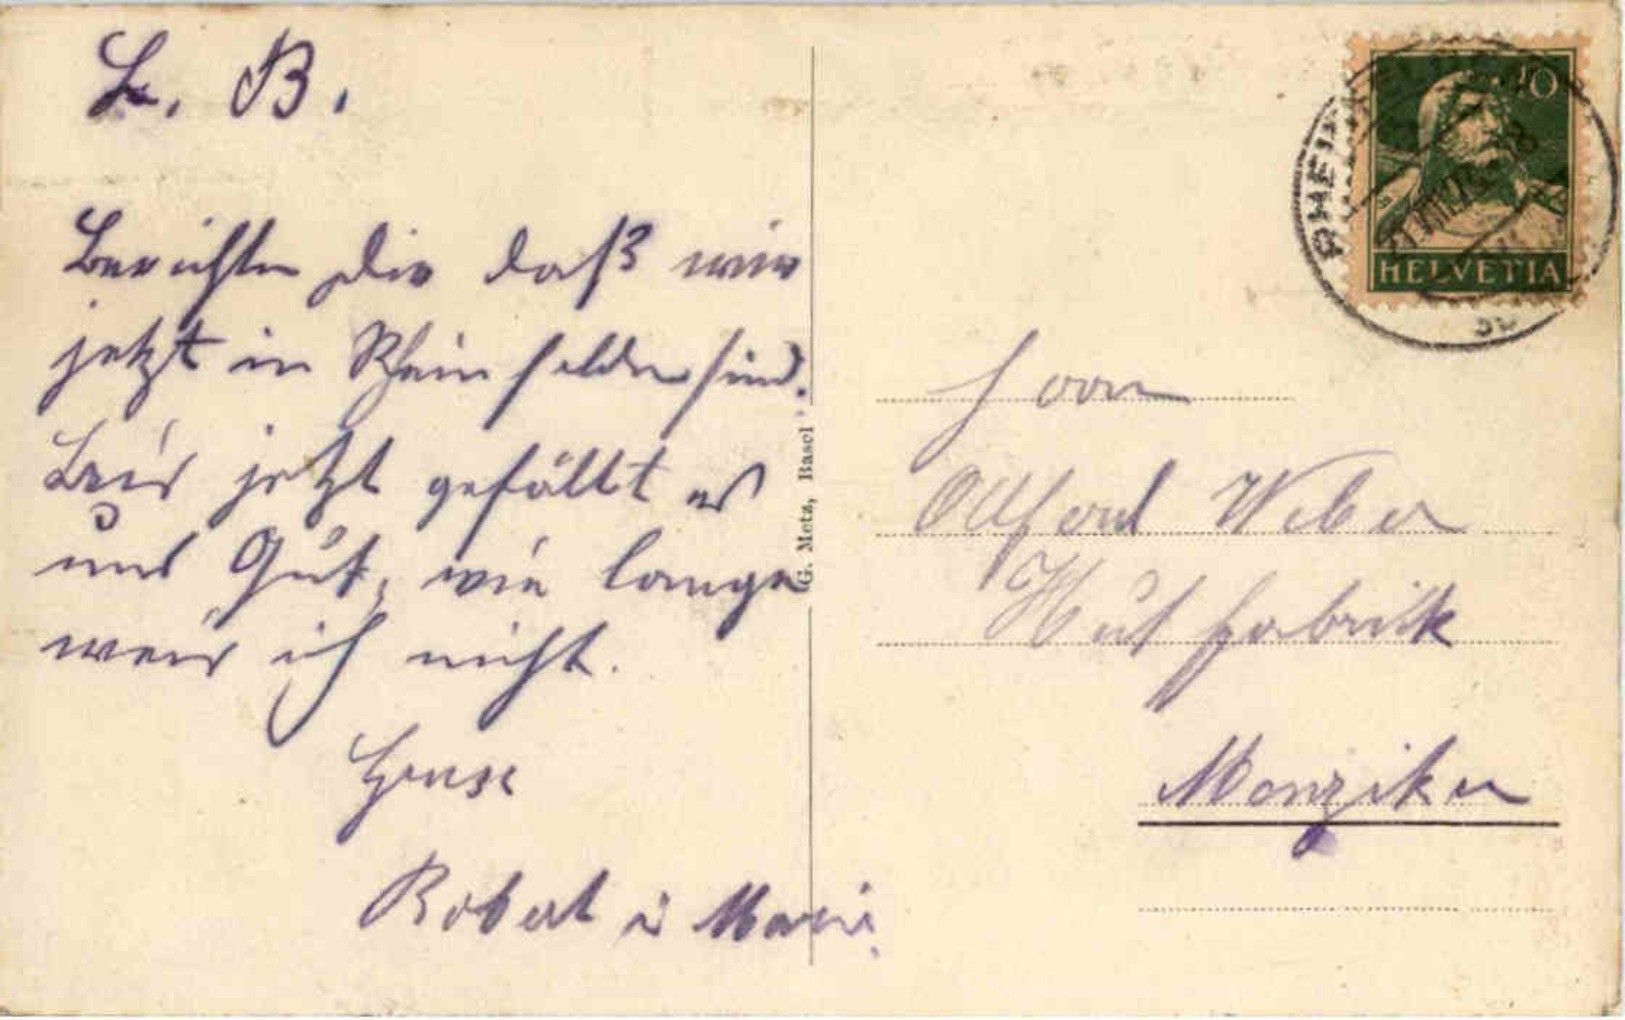 L. B.
Berichten Dir daß wir
jetzt in Rheinfelden sind.
Bis jetzt gefällt es
uns Gut, wie lange
weis ich nicht.
Grüsse
Robert u Marie.
G. Metz, Basel
10
HELVETIA
RHEINFELDEN
Herrn
Alfred Weber
Hutfabrik
Menziken